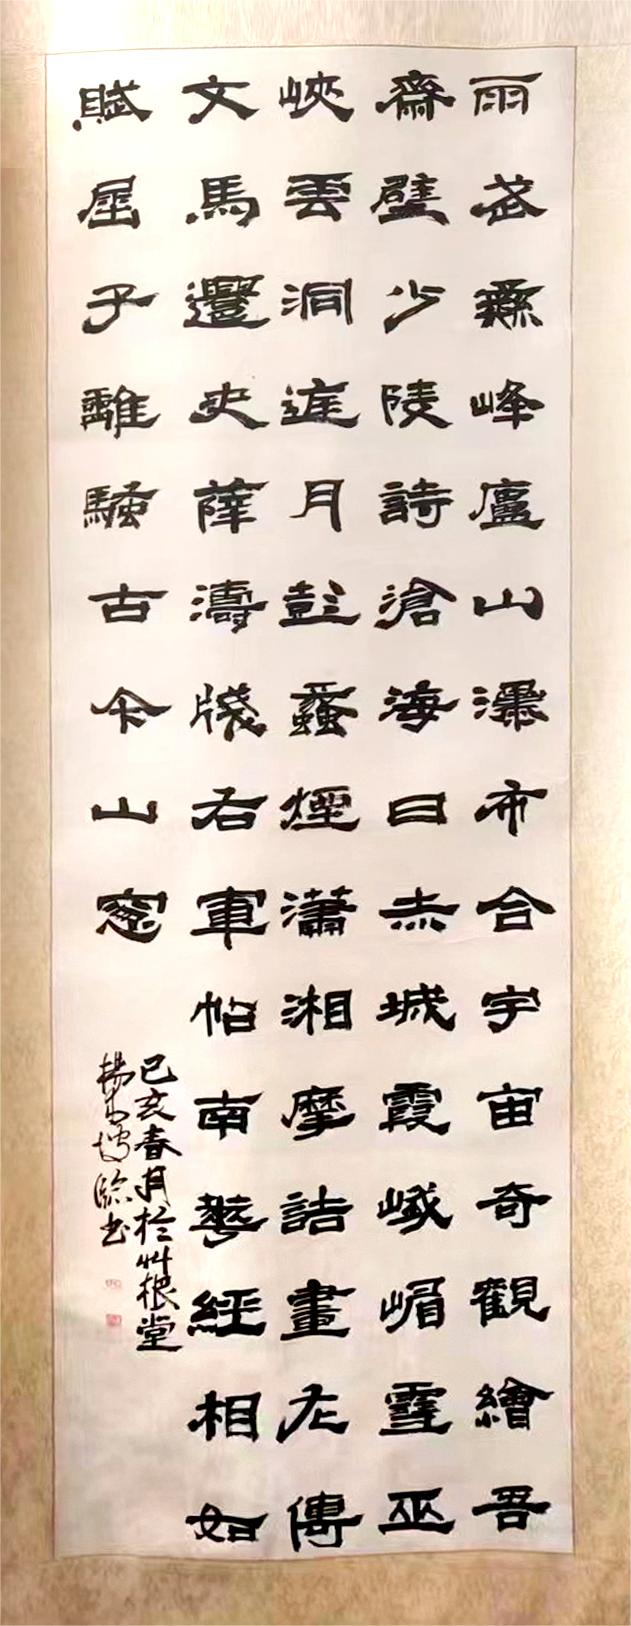 雨武彝峰廬山瀑布合宇宙奇觀繪吾
齋壁少陵詩滄海日赤城霞峨嵋雪巫
峽雲洞庭月彭蠡煙瀟湘摩詰畫左傳
文馬遷史薛濤牋右軍帖南華經相如
賦屈子離騷古今山窓
己亥春月於艸根堂
楊臨書